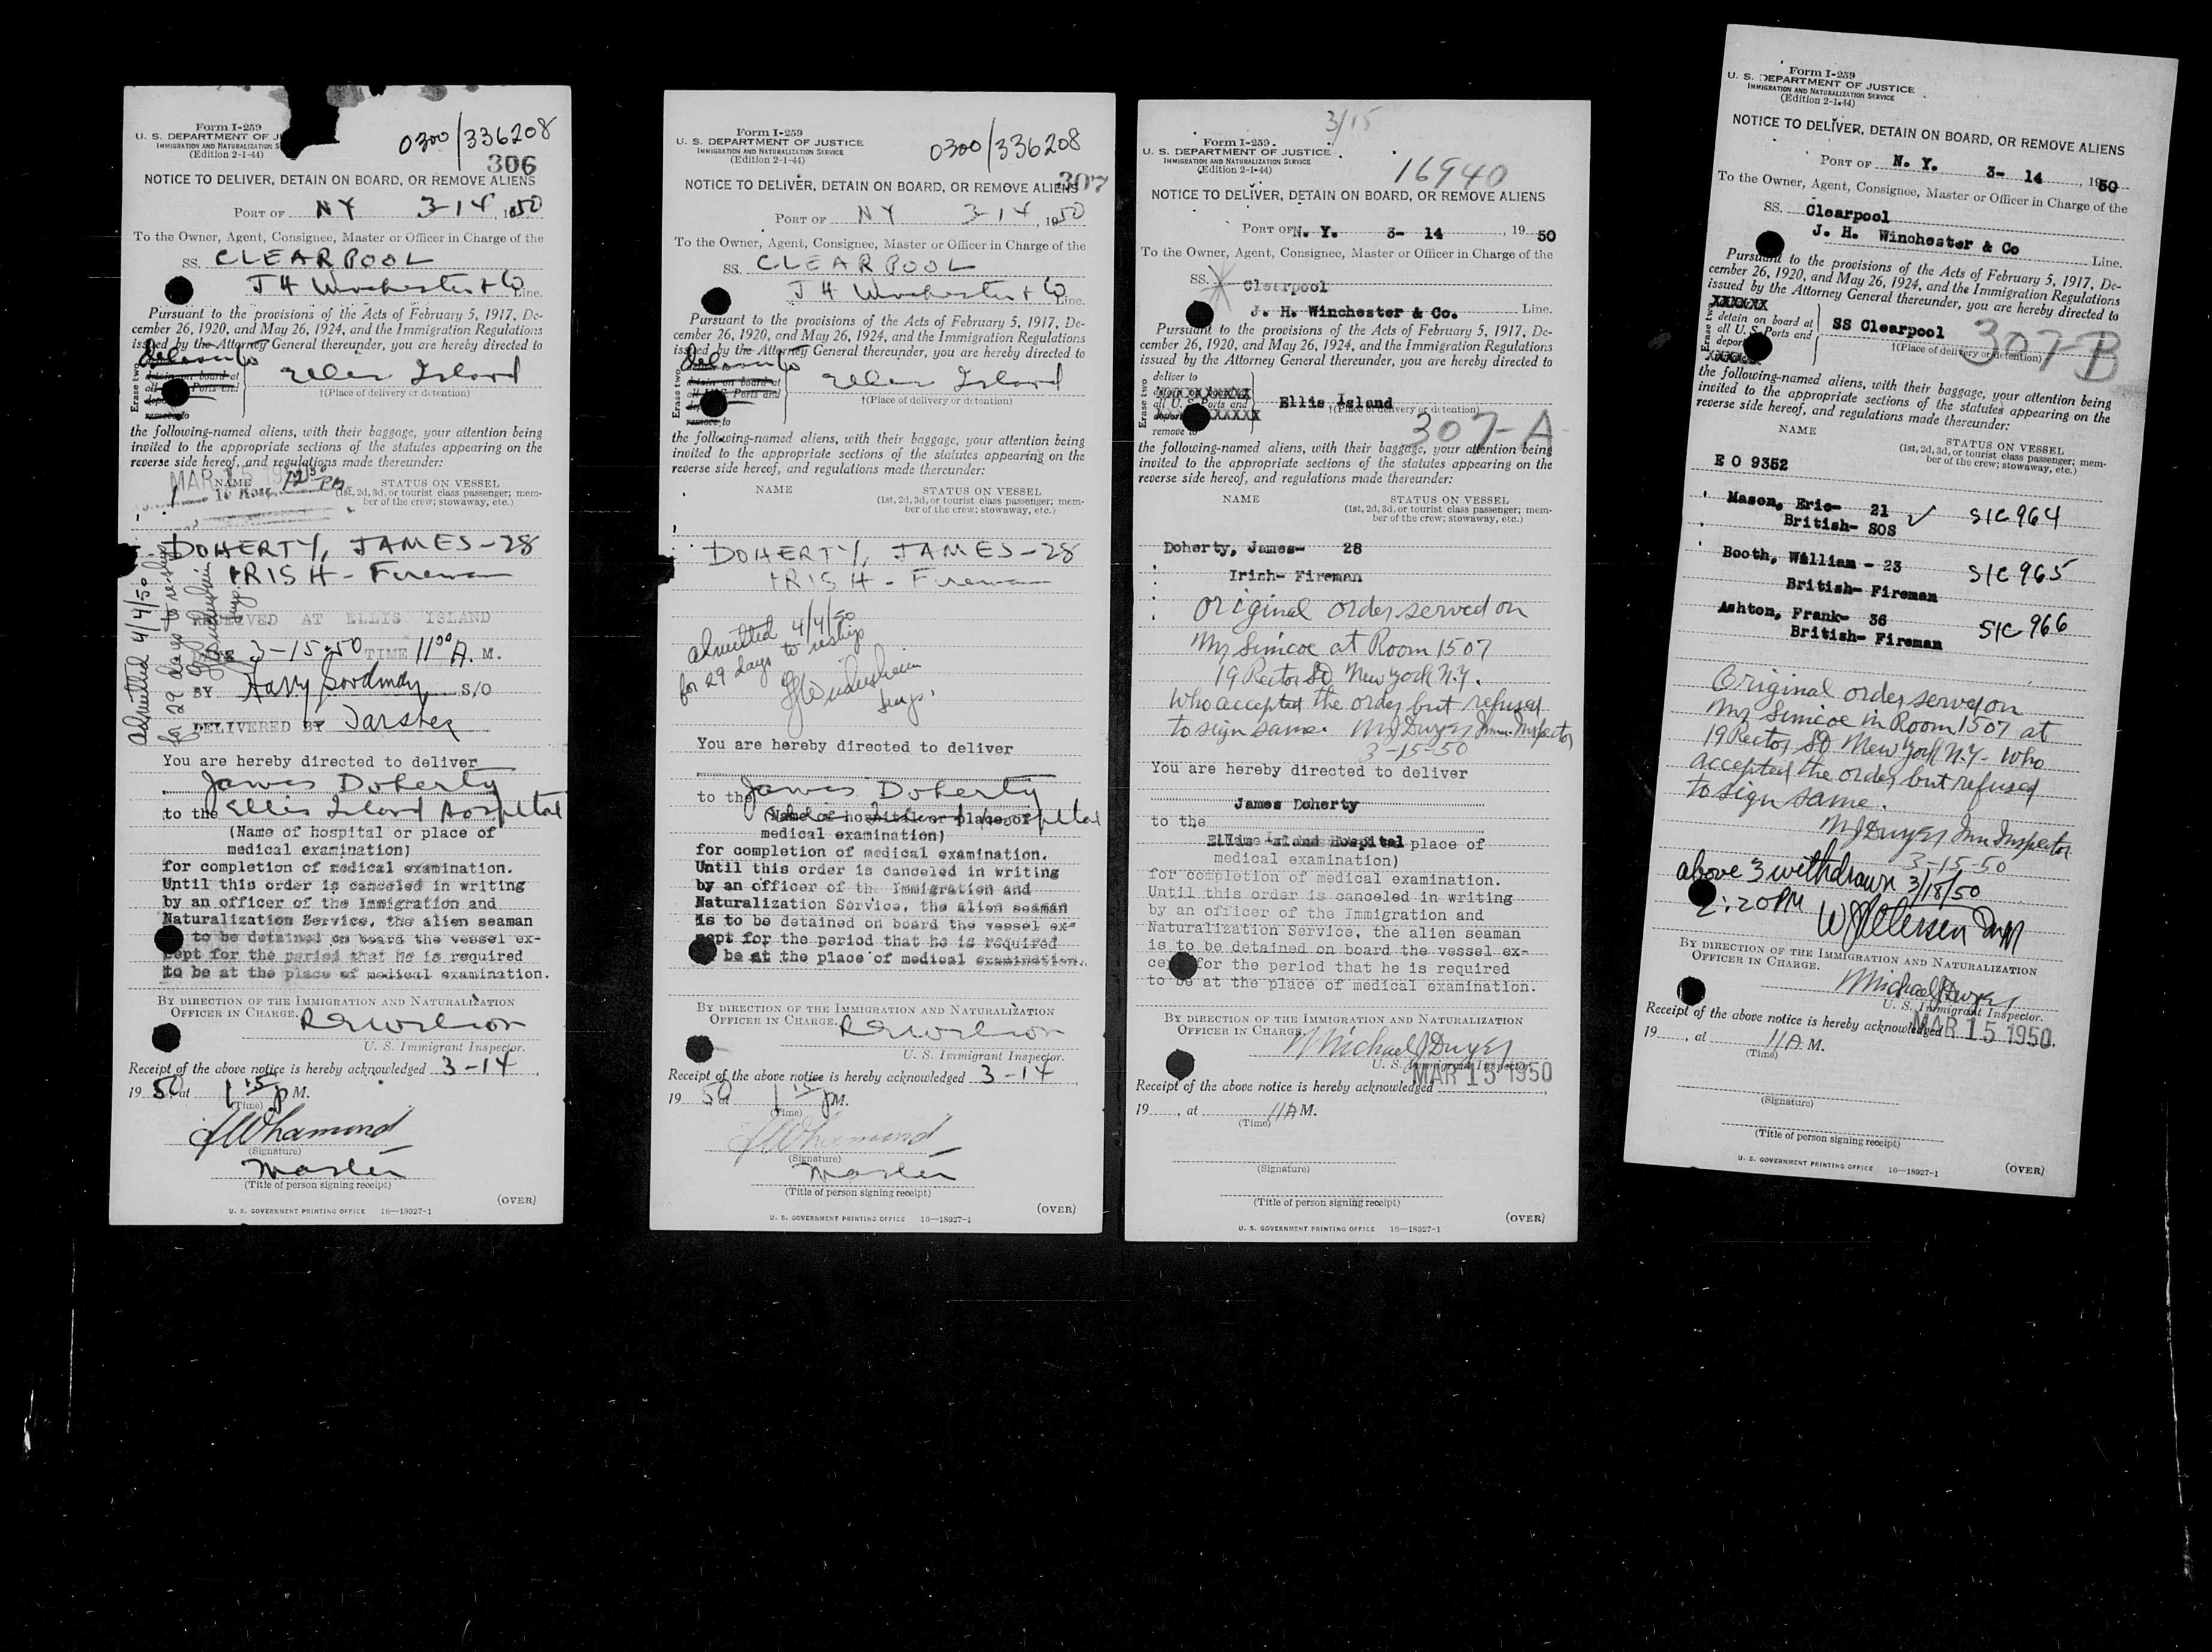 Form I-259
U. S. DEPARTMENT OF J
IMMIGRATION AND NATURALIZATION S
(Edition 2-1-44)
0300/336208
306
NOTICE TO DELIVER, DETAIN ON BOARD, OR REMOVE ALIENS
PORT OF NY 3-14, 1950
To the Owner, Agent, Consignee, Master or Officer in Charge of the
SS. CLEARPOOL
J H Winchester & Co Line.
Pursuant to the provisions of the Acts of February 5, 1917, De-
cember 26, 1920, and May 26, 1924, and the Immigration Regulations
issued by the Attorney General thereunder, you are hereby directed to
Erase two
deliver to
detain on board at
all Ports and
remove to
Ellis Island
†(Place of delivery or detention)
the following-named aliens, with their baggage, your attention being
invited to the appropriate sections of the statutes appearing on the
reverse side hereof, and regulations made thereunder:
MAR 15 19
NAME
STATUS ON VESSEL
(1st, 2d, 3d, or tourist class passenger; mem-
ber of the crew; stowaway, etc.)
DOHERTY, JAMES-28
IRISH - Fireman
Admitted 4/4/50
for 29 days to reship
RECEIVED AT ELLIS ISLAND
DATE 3-15-50 TIME 11 00 A. M.
BY Harry Goodman S/O
DELIVERED BY
You are hereby directed to deliver
James Doherty
to the Ellis Island Hospital
(Name of hospital or place of
medical examination)
for completion of medical examination.
Until this order is canceled in writing
by an officer of the Immigration and
Naturalization Service, the alien seaman
to be detained on board the vessel ex-
cept for the period that he is required
to be at the place of medical examination.
BY DIRECTION OF THE IMMIGRATION AND NATURALIZATION
OFFICER IN CHARGE.
U. S. Immigrant Inspector.
Receipt of the above notice is hereby acknowledged 3-14,
19 50 at 1 15 P M.
(Time)
(Signature)
Master
(Title of person signing receipt)
(OVER)
U. S. GOVERNMENT PRINTING OFFICE 16—18927-1
Form I-259
U. S. DEPARTMENT OF JUSTICE
IMMIGRATION AND NATURALIZATION SERVICE
(Edition 2-1-44)
0300/336208
307
NOTICE TO DELIVER, DETAIN ON BOARD, OR REMOVE ALIENS
PORT OF NY 3-14, 1950
To the Owner, Agent, Consignee, Master or Officer in Charge of the
SS. CLEARPOOL
J H Winchester & Co Line.
Pursuant to the provisions of the Acts of February 5, 1917, De-
cember 26, 1920, and May 26, 1924, and the Immigration Regulations
issued by the Attorney General thereunder, you are hereby directed to
Erase two
deliver to
detain on board at
all Ports and
remove to
Ellis Island
†(Place of delivery or detention)
the following-named aliens, with their baggage, your attention being
invited to the appropriate sections of the statutes appearing on the
reverse side hereof, and regulations made thereunder:
NAME
STATUS ON VESSEL
(1st, 2d, 3d, or tourist class passenger; mem-
ber of the crew; stowaway, etc.)
DOHERTY, JAMES-28
IRISH - Fireman
Admitted 4/4/50
for 29 days to reship
You are hereby directed to deliver
James Doherty
to the Ellis Island Hospital
(Name of hospital or place of
medical examination)
for completion of medical examination.
Until this order is canceled in writing
by an officer of the Immigration and
Naturalization Service, the alien seaman
is to be detained on board the vessel ex-
cept for the period that he is required
be at the place of medical examination.
BY DIRECTION OF THE IMMIGRATION AND NATURALIZATION
OFFICER IN CHARGE.
U. S. Immigrant Inspector.
Receipt of the above notice is hereby acknowledged 3-14,
19 50 at 1 15 P M.
(Time)
(Signature)
Master
(Title of person signing receipt)
(OVER)
U. S. GOVERNMENT PRINTING OFFICE 16—18927-1
3/15
Form I-259
U. S. DEPARTMENT OF JUSTICE
IMMIGRATION AND NATURALIZATION SERVICE
(Edition 2-1-44)
16940
NOTICE TO DELIVER, DETAIN ON BOARD, OR REMOVE ALIENS
PORT OF N. Y. 3- 14, 19 50
To the Owner, Agent, Consignee, Master or Officer in Charge of the
SS. Clearpool
J. H. Winchester & Co. Line.
Pursuant to the provisions of the Acts of February 5, 1917, De-
cember 26, 1920, and May 26, 1924, and the Immigration Regulations
issued by the Attorney General thereunder, you are hereby directed to
Erase two
deliver to
all U. S. Ports and
remove to
Ellis Island
†(Place of delivery or detention)
307-A
the following-named aliens, with their baggage, your attention being
invited to the appropriate sections of the statutes appearing on the
reverse side hereof, and regulations made thereunder:
NAME
STATUS ON VESSEL
(1st, 2d, 3d, or tourist class passenger; mem-
ber of the crew; stowaway, etc.)
Doherty, James- 28
Irish- Fireman
Original order served on
Mr Simcoe at Room 1507
19 Rector St New York N.Y.
Who accepted the order but refused
to sign same. MJ Dwyer Imm. Inspector
3-15-50
You are hereby directed to deliver
James Doherty
to the
Ellis Island Hospital place of
medical examination)
for completion of medical examination.
Until this order is canceled in writing
by an officer of the Immigration and
Naturalization Service, the alien seaman
is to be detained on board the vessel ex-
cept for the period that he is required
to be at the place of medical examination.
BY DIRECTION OF THE IMMIGRATION AND NATURALIZATION
OFFICER IN CHARGE.
Michael J Dwyer
U. S. Immigrant Inspector.
MAR 15 1950
Receipt of the above notice is hereby acknowledged
19 , at 11 A M.
(Time)
(Signature)
(Title of person signing receipt)
(OVER)
U. S. GOVERNMENT PRINTING OFFICE 16—18927-1
Form I-259
U. S. DEPARTMENT OF JUSTICE
IMMIGRATION AND NATURALIZATION SERVICE
(Edition 2-1-44)
NOTICE TO DELIVER, DETAIN ON BOARD, OR REMOVE ALIENS
PORT OF N. Y. 3- 14, 1950
To the Owner, Agent, Consignee, Master or Officer in Charge of the
SS. Clearpool
J. H. Winchester & Co Line.
Pursuant to the provisions of the Acts of February 5, 1917, De-
cember 26, 1920, and May 26, 1924, and the Immigration Regulations
issued by the Attorney General thereunder, you are hereby directed to
Erase two
XXXXXX
detain on board at
all U. S. Ports and
deport
SS Clearpool
†(Place of delivery or detention)
307-B
the following-named aliens, with their baggage, your attention being
invited to the appropriate sections of the statutes appearing on the
reverse side hereof, and regulations made thereunder:
NAME
STATUS ON VESSEL
(1st, 2d, 3d, or tourist class passenger; mem-
ber of the crew; stowaway, etc.)
E O 9352
Mason, Eric- 21 ✓ SIC 964
British- SOS
Booth, William - 23 SIC 965
British- Fireman
Ashton, Frank- 36 SIC 966
British- Fireman
Original order served on
Mr Simcoe in Room 1507 at
19 Rector St New York N.Y. Who
accepted the order but refused
to sign same.
MJ Dwyer Imm Inspector
3-15-50
above 3 withdrawn 3/18/50
2:20 PM
BY DIRECTION OF THE IMMIGRATION AND NATURALIZATION
OFFICER IN CHARGE.
Michael J Dwyer
U. S. Immigrant Inspector.
Receipt of the above notice is hereby acknowledged MAR 15 1950.
19 , at 11 A M.
(Time)
(Signature)
(Title of person signing receipt)
U. S. GOVERNMENT PRINTING OFFICE 16—18927-1
(OVER)